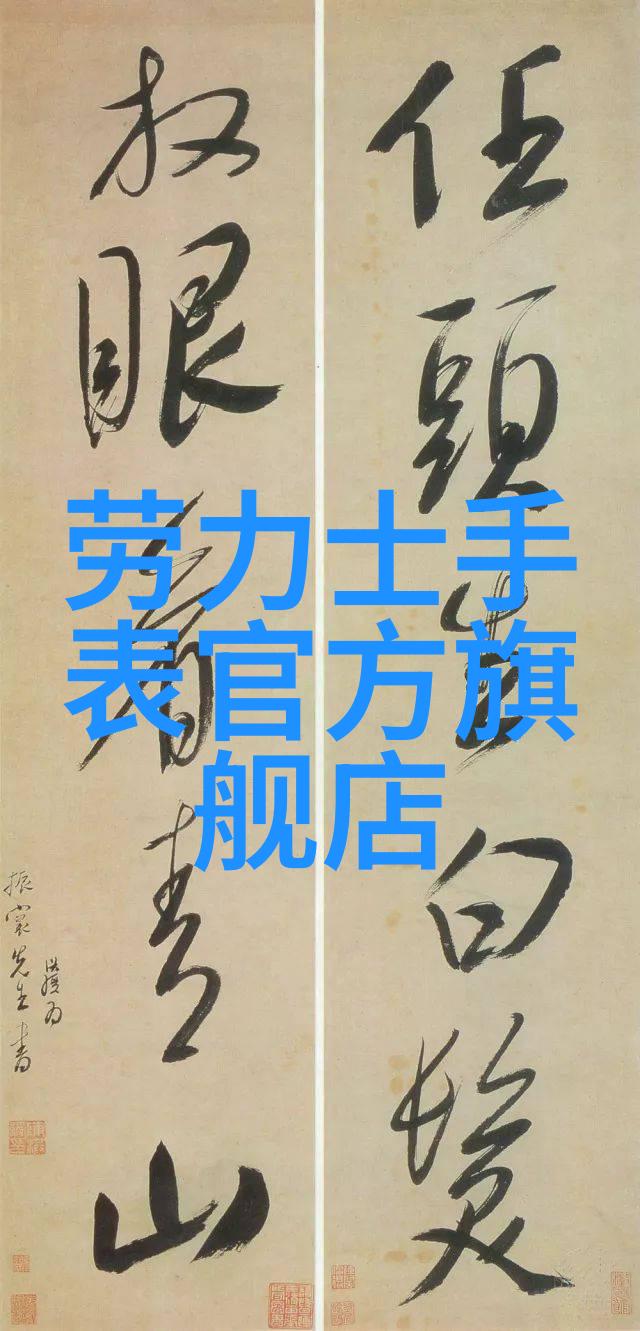 任頭生白髮
放眼看青山
先生書
劳力士手
表官方旗
舰店